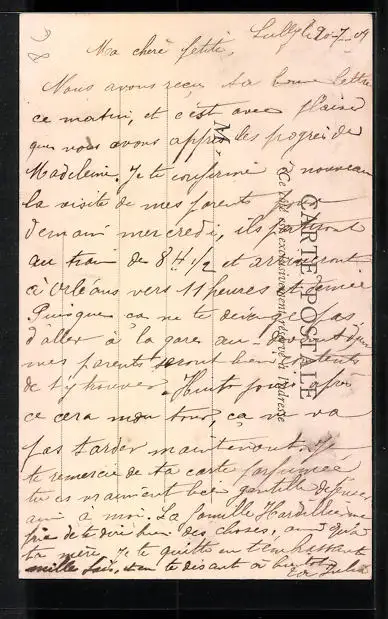 Sully le 20-7-09
Ma chère petite,
Nous avons reçu ta bonne lettre
ce matin, et c'est avec plaisir
que nous avons appris les progrès de
Madeleine. Je te confirme à nouveau
la visite de mes parents pour
demain mercredi, ils partiront
au train de 8 H 1/2 et arriveront
à Orléans vers 11 heures et demie
Puisque ça ne te dérange pas
d'aller à la gare au-devant
mes parents seront bien contents
de t'y trouver. Huit jours après
ce cera mon tour, ça ne va
pas tarder maintenant. Je
te remercie de ta carte parfumée
tu es vraiment bien gentille de penser
ainsi à moi. La famille Hardillier me
prie de te dire bien des choses, ainsi qu'à
ta mère. Je te quitte en t'embrassant
mille fois, et en te disant à bientôt
Julia
CARTE POSTALE
Ce côté est exclusivement réservé à l'adresse
M